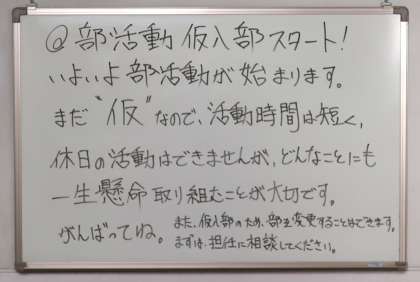 @ 部活動 仮入部スタート!
いよいよ部活動が始まります。
まだ“仮”なので、活動時間は短く、
休日の活動はできませんが、どんなことにも
一生懸命取り組むことが大切です。
がんばってね。
また、仮入部のため、部を変更することはできます。
まずは、担任に相談してください。